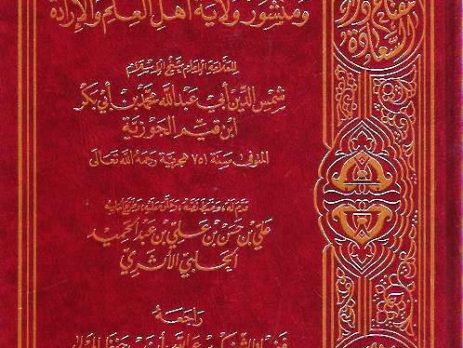 ومنشور ولاية أهل العلم والإرادة
مفتاح دار
السعادة
للعلامة الإمام شيخ الإسلام
شمس الدين أبي عبد الله محمد بن أبي بكر
ابن قيم الجوزية
المتوفى سنة ٧٥١ هجرية رحمه الله تعالى
علي بن حسن بن علي بن عبد الحميد
الحلبي الأثري
راجعه